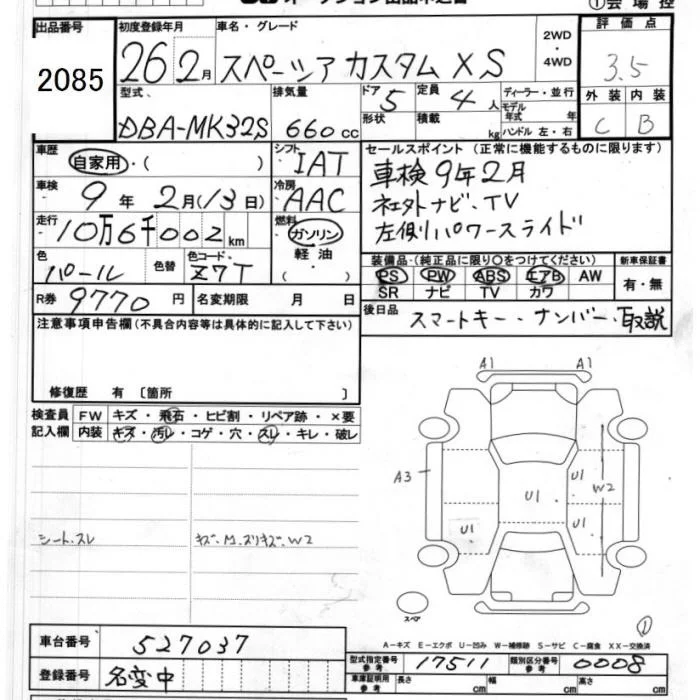 ①会場控
出品番号 初度登録年月 車名・グレード 2WD 評価点
2085 26 2月 スペーシア カスタム XS ・ 3.5
4WD
型式 排気量 ドア 5 定員 4人 ディーラー・並行 外装 内装
DBA-MK32S 660cc 形状 積載 kg モデル年式 年 C B
ハンドル 左・右
車歴 自家用・( ) シフト IAT セールスポイント (正常に機能するものに限ります)
車検 9年 2月(13日) 冷房 AAC 車検9年2月
走行 10万6千002km 燃料 ガソリン 社外ナビ・TV
軽油 左側パワースライド
( ・ )
色 パール 色替 色コード Z7T 装備品・(純正品に限り○をつけてください) 新車保証書
PS PW ABS エアB AW 有・無
R券 9770円 名変期限 月 日 SR ナビ TV カワ
注意事項申告欄(不具合内容等は具体的に記入して下さい) 後日品 スマートキー・ナンバー・取説
修復歴 有〔箇所 〕
検査員 FW キズ・飛石・ヒビ割・リペア跡・×要
記入欄 内装 キズ・汚レ・コゲ・穴・スレ・キレ・破レ
A1 A1
A3 U1 U1 W2
U1 U1
シート.スレ キズ.M.スリキズ.W2
スペア ①
A－キズ E－エクボ U－凹み W－補修跡 S－サビ C－腐食 XX－交換済
車台番号 527037 型式指定番号 参考 17511 類別区分番号 参考 0008
登録番号 名変中 車庫証明用 参考 長さ cm 幅 cm 高さ cm